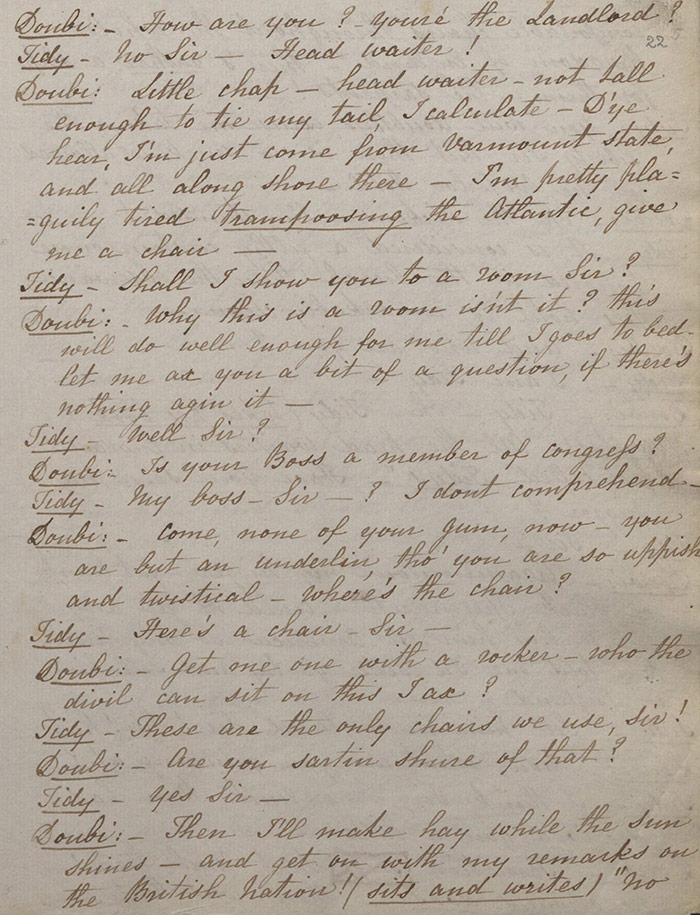 Doubi: - How are you? - you're the Landlord?
22
Tidy - No Sir - Head waiter!
Doubi: Little chap - head waiter - not tall
enough to tie my tail I calculate - D'ye
hear, I'm just come from Varmount state,
and all along shore there - I'm pretty pla=
=guily tired trampoosing the Atlantic, give
me a chair -
Tidy - Shall I show you to a room Sir?
Doubi: - Why this is a room isn't it? this
will do well enough for me till I goes to bed
let me ax you a bit of a question, if there's
nothing agin it -
Tidy - Well Sir?
Doubi: - Is your Boss a member of congress?
Tidy - My boss - Sir - ? I dont comprehend -
Doubi: - Come, none of your gum, now - you
are but an underlin, tho' you are so uppish
and twistical - where's the chair?
Tidy - Here's a chair - Sir -
Doubi: - Get me one with a rocker - who the
divil can sit on this I ax?
Tidy - These are the only chairs we use, Sir!
Doubi: - Are you sartin shure of that?
Tidy - yes Sir -
Doubi: - Then I'll make hay while the sun
shines - and get on with my remarks on
the British Nation! (sits and writes) "No